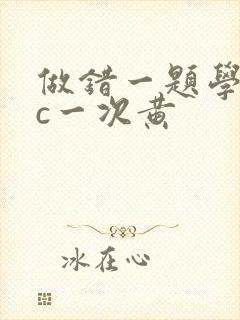 做錯一題學
c一次黄
冰在心